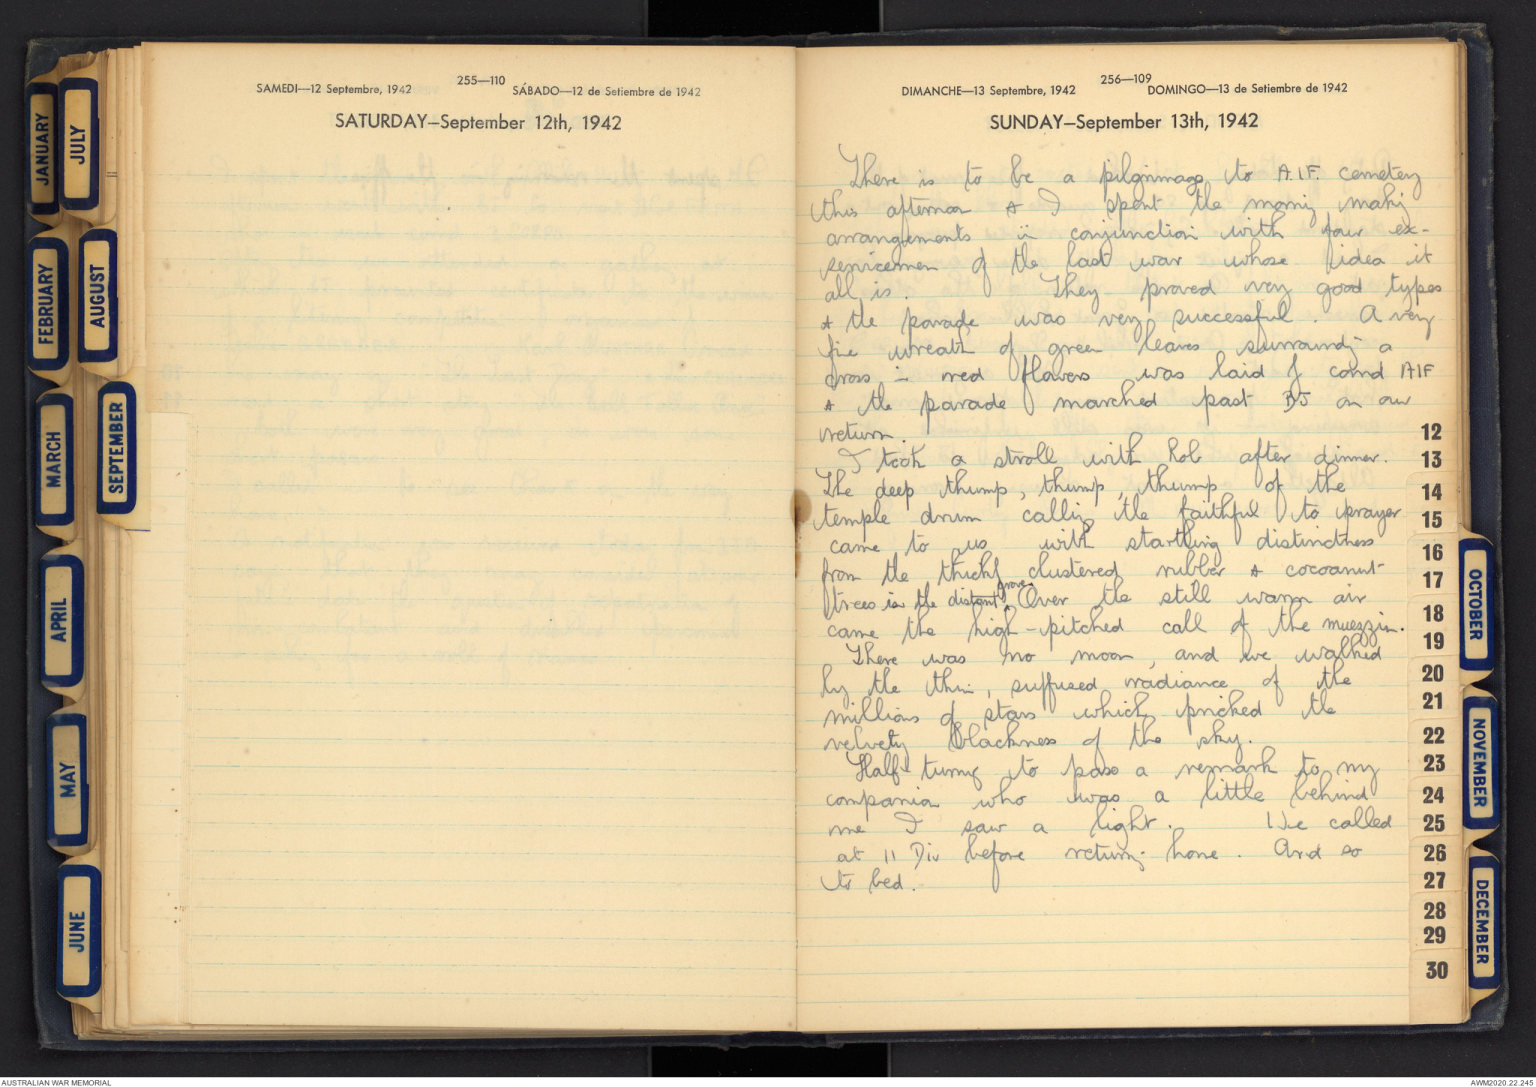 255—110
SAMEDI—12 Septembre, 1942 SÁBADO—12 de Setiembre de 1942
SATURDAY—September 12th, 1942
256—109
DIMANCHE—13 Septembre, 1942 DOMINGO—13 de Setiembre de 1942
SUNDAY—September 13th, 1942
There is to be a pilgrimage to A.I.F. cemetery
this afternoon & I spent the morning making
arrangements in conjunction with four ex-
servicemen of the last war whose idea it
all is. They proved very good types
& the parade was very successful. A very
fine wreath of green leaves surroundg a
cross in red flowers was laid by comd AIF
& the parade marched past BJ on our
return.
I took a stroll with Rob after dinner.
The deep thump, thump, thump of the
temple drum calling the faithful to prayer
came to us with startling distinctness
from the thickly clustered rubber & cocoanut
trees in the distant grove. Over the still warm air
came the high-pitched call of the muezzin.
There was no moon, and we walked
by the thin, suffused radiance of the
millions of stars which pricked the
velvety blackness of the sky.
Half turning to pass a remark to my
companion who was a little behind
me I saw a light. We called
at 11 Div before returng home. And so
to bed.
JANUARY
FEBRUARY
MARCH
APRIL
MAY
JUNE
JULY
AUGUST
SEPTEMBER
OCTOBER
NOVEMBER
DECEMBER
12
13
14
15
16
17
18
19
20
21
22
23
24
25
26
27
28
29
30
AUSTRALIAN WAR MEMORIAL
AWM2020.22.245